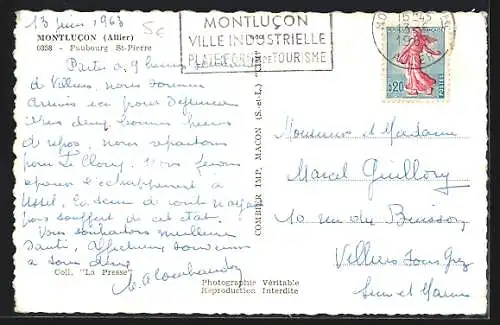 13 juin 1963
5c
MONTLUÇON (Allier)
0358 - Faubourg St-Pierre
MONTLUÇON
VILLE INDUSTRIELLE
PLATEFORME DE TOURISME
15-45
0,20
POSTES
Partis à 9 heures
de Villiers, nous sommes
arrivés ici pour déjeuner
très deux bonnes heures
de repos, nous repartons
pour Le Cloug. Nous ferons
l'échappement à
Ussel. La
pas souffert de cet état.
Vous souhaitons meilleure
santé, affectueux souvenirs
à vous deux
Coll. "La Presse"
COMBIER IMP. MACON (S.-et-L.) "CIM"
Photographie Véritable
Reproduction Interdite
Monsieur et Madame
Marcel Guillory
10 rue du Buisson
Villiers sous Grez
Seine et Marne